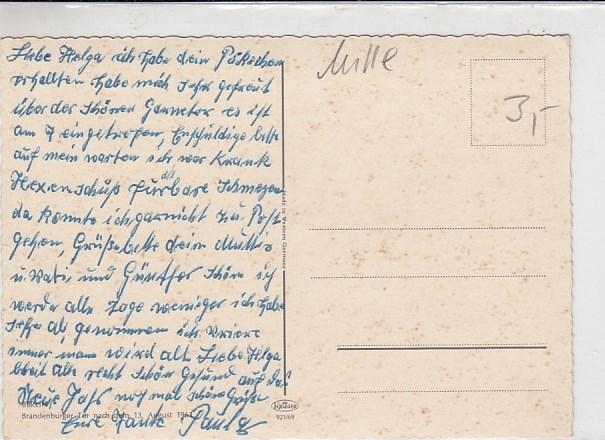 Liebe Helga ich habe dein Päkchen
erhallten habe mich sehr gefreut
über der schönen Garnetor es ist
am 7 eingetroffen, Enschuldige bitte
auf mein warten ich war Krank
Hexenschuß furbare Schmezen
da konnte ich garnicht zu. Post
gehen, Grüße bitte deine Mutter
u. Vati, und Günther schön ich
werde alle Tage weniger ich habe
sehr ab genommen ich
immer man wird alt Liebe Helga
bleit alle recht schön Gesund auf das
Neue Jahr noch mal schöne Grüße
Eure Tante Paula
Brandenburger Tor nach dem 13. August 1961
Mitte
3,-
Made in Western Germany
Krüger
921/69